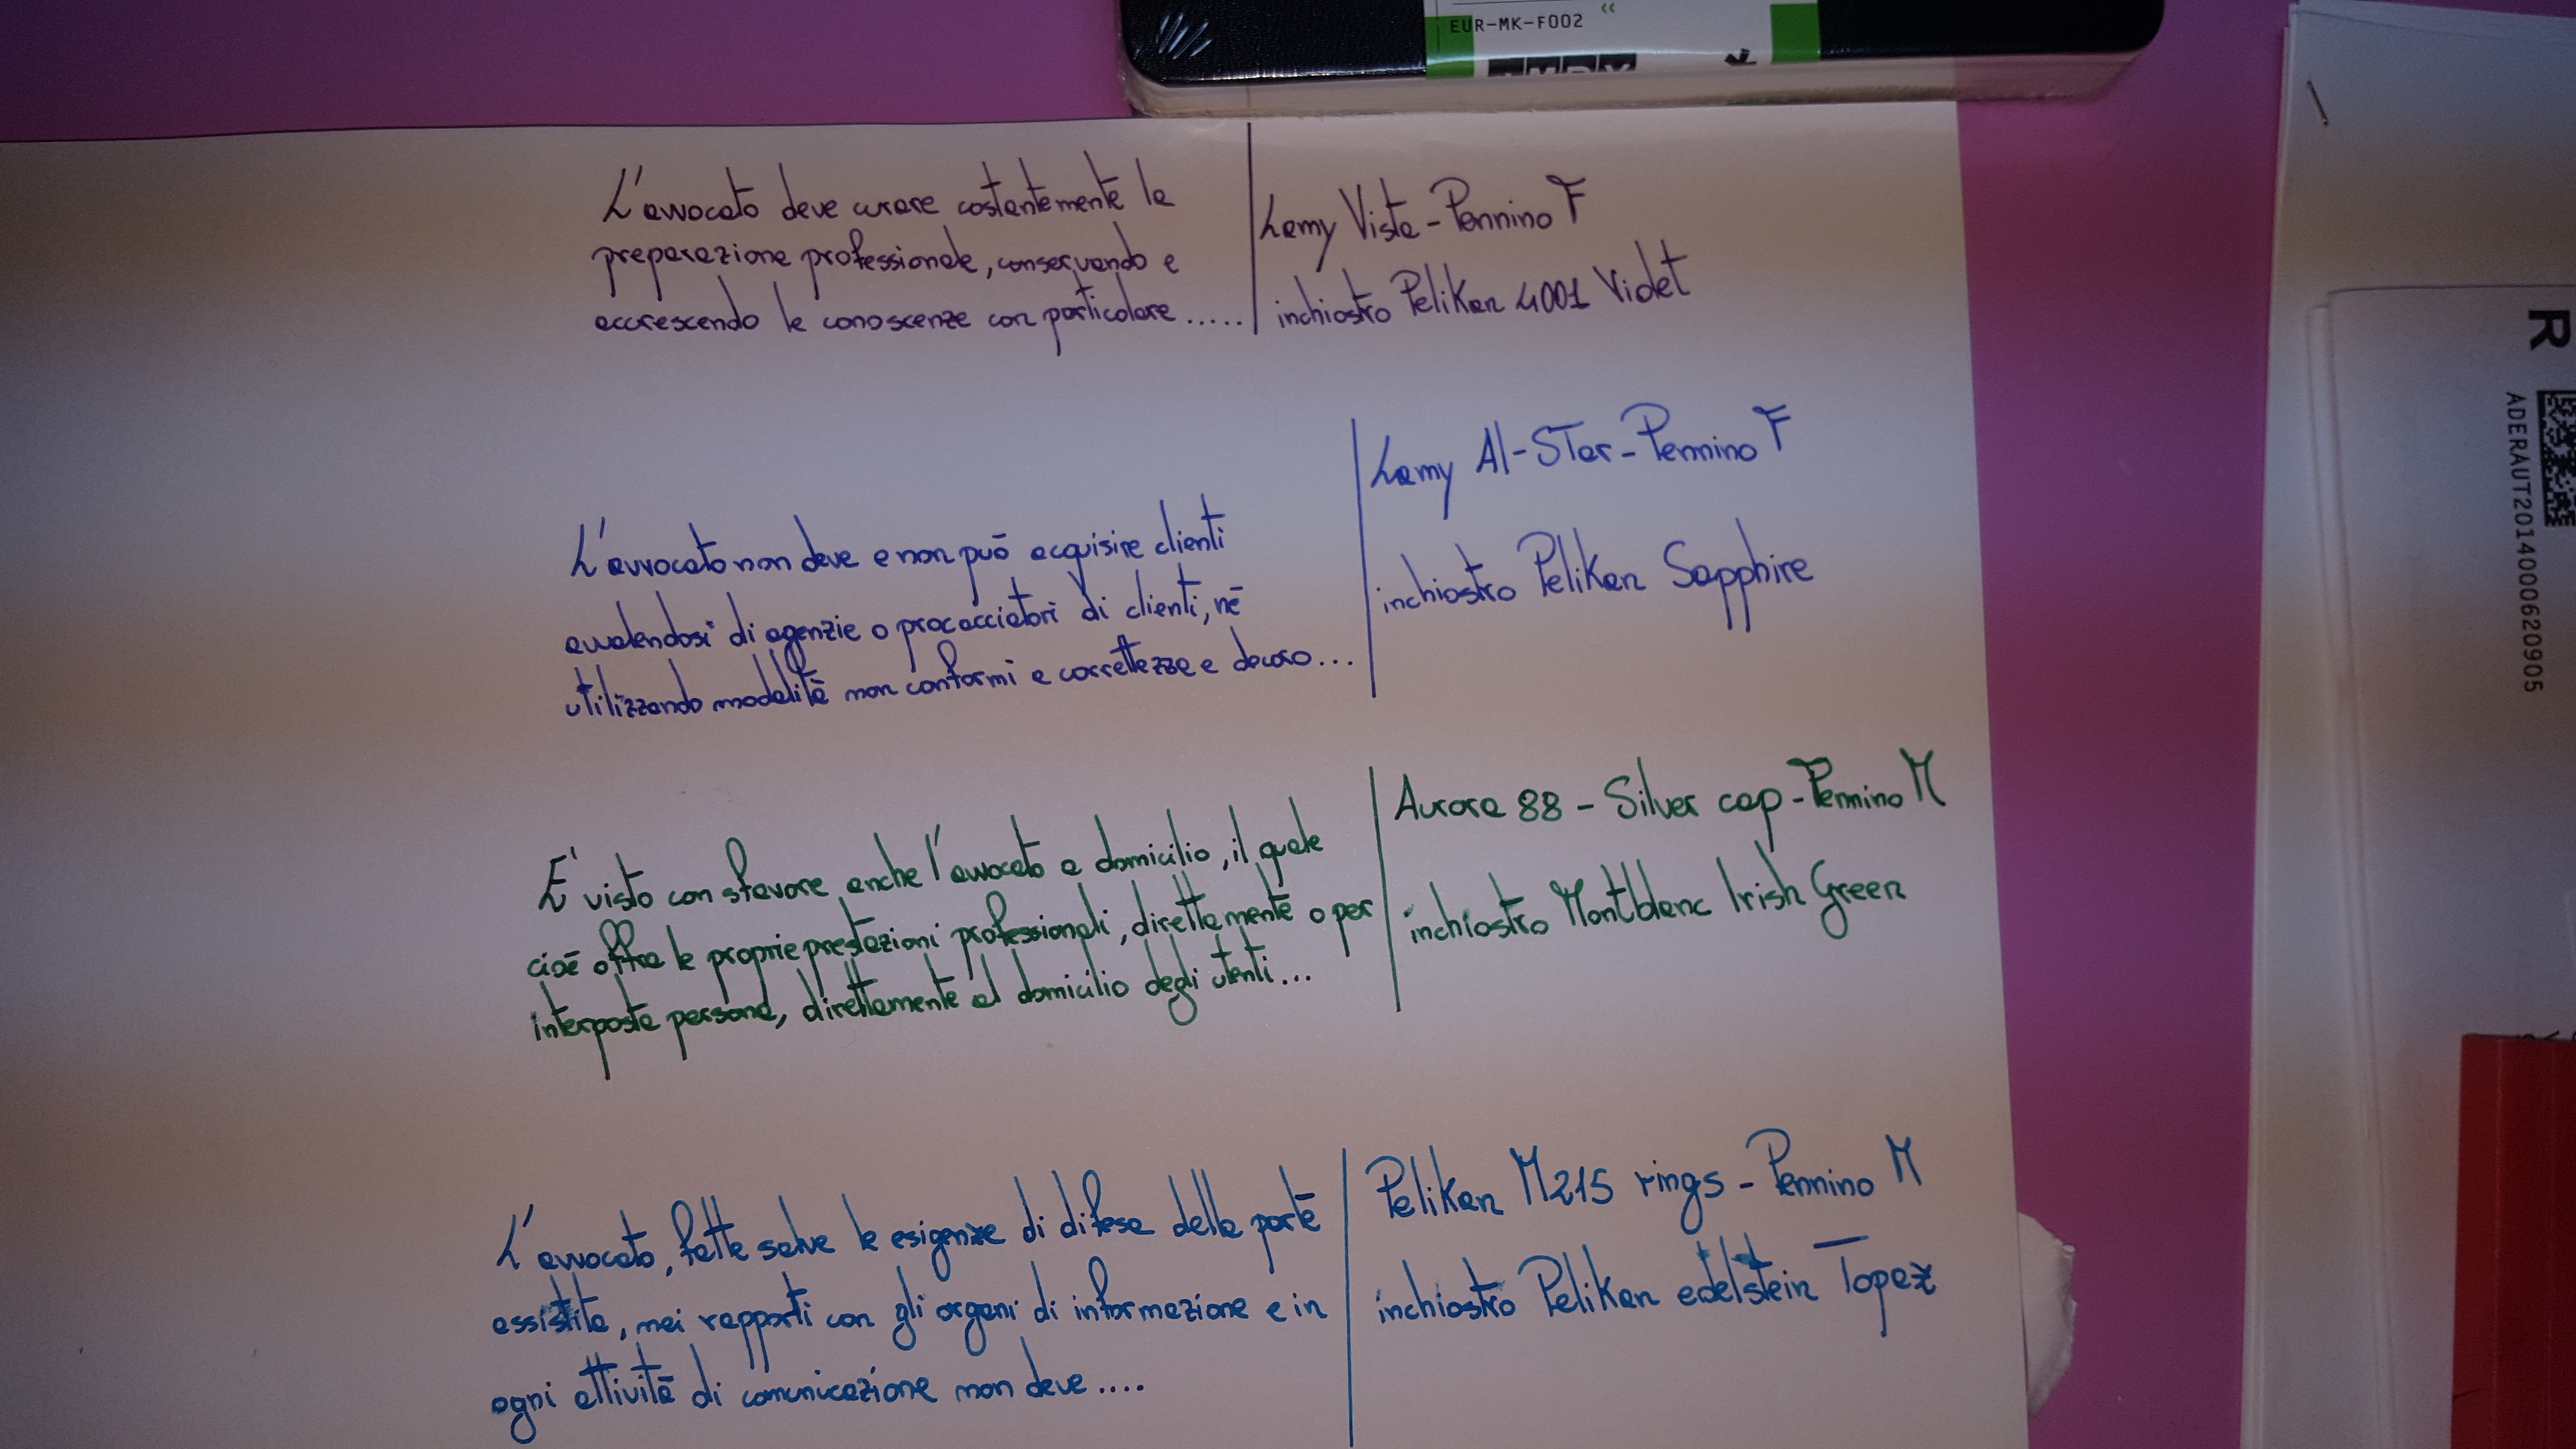 EUR-MK-F002
L'avvocato deve curare costantemente la
preparazione professionale, conservando e
accrescendo le conoscenze con particolare .....
Lamy Vista - Pennino F
inchiostro Pelikan 4001 Violet
L'avvocato non deve e non può acquisire clienti
avvalendosi di agenzie o procacciatori di clienti, nē
utilizzando modalità non conformi a correttezza e decoro...
Lamy Al-Star - Pennino F
inchiostro Pelikan Sapphire
E' visto con sfavore anche l'avvocato a domicilio, il quale
cioè offra le proprie prestazioni professionali, direttamente o per
interposta persona, direttamente al domicilio degli utenti...
Aurora 88 - Silver cap - Pennino M
inchiostro Montblanc Irish Green
L'avvocato, fatte salve le esigenze di difesa della parte
assistita, nei rapporti con gli organi di informazione e in
ogni attività di comunicazione non deve ....
Pelikan M215 rings - Pennino M
inchiostro Pelikan edelstein Topaz
R
ADERAUT201400062090​5